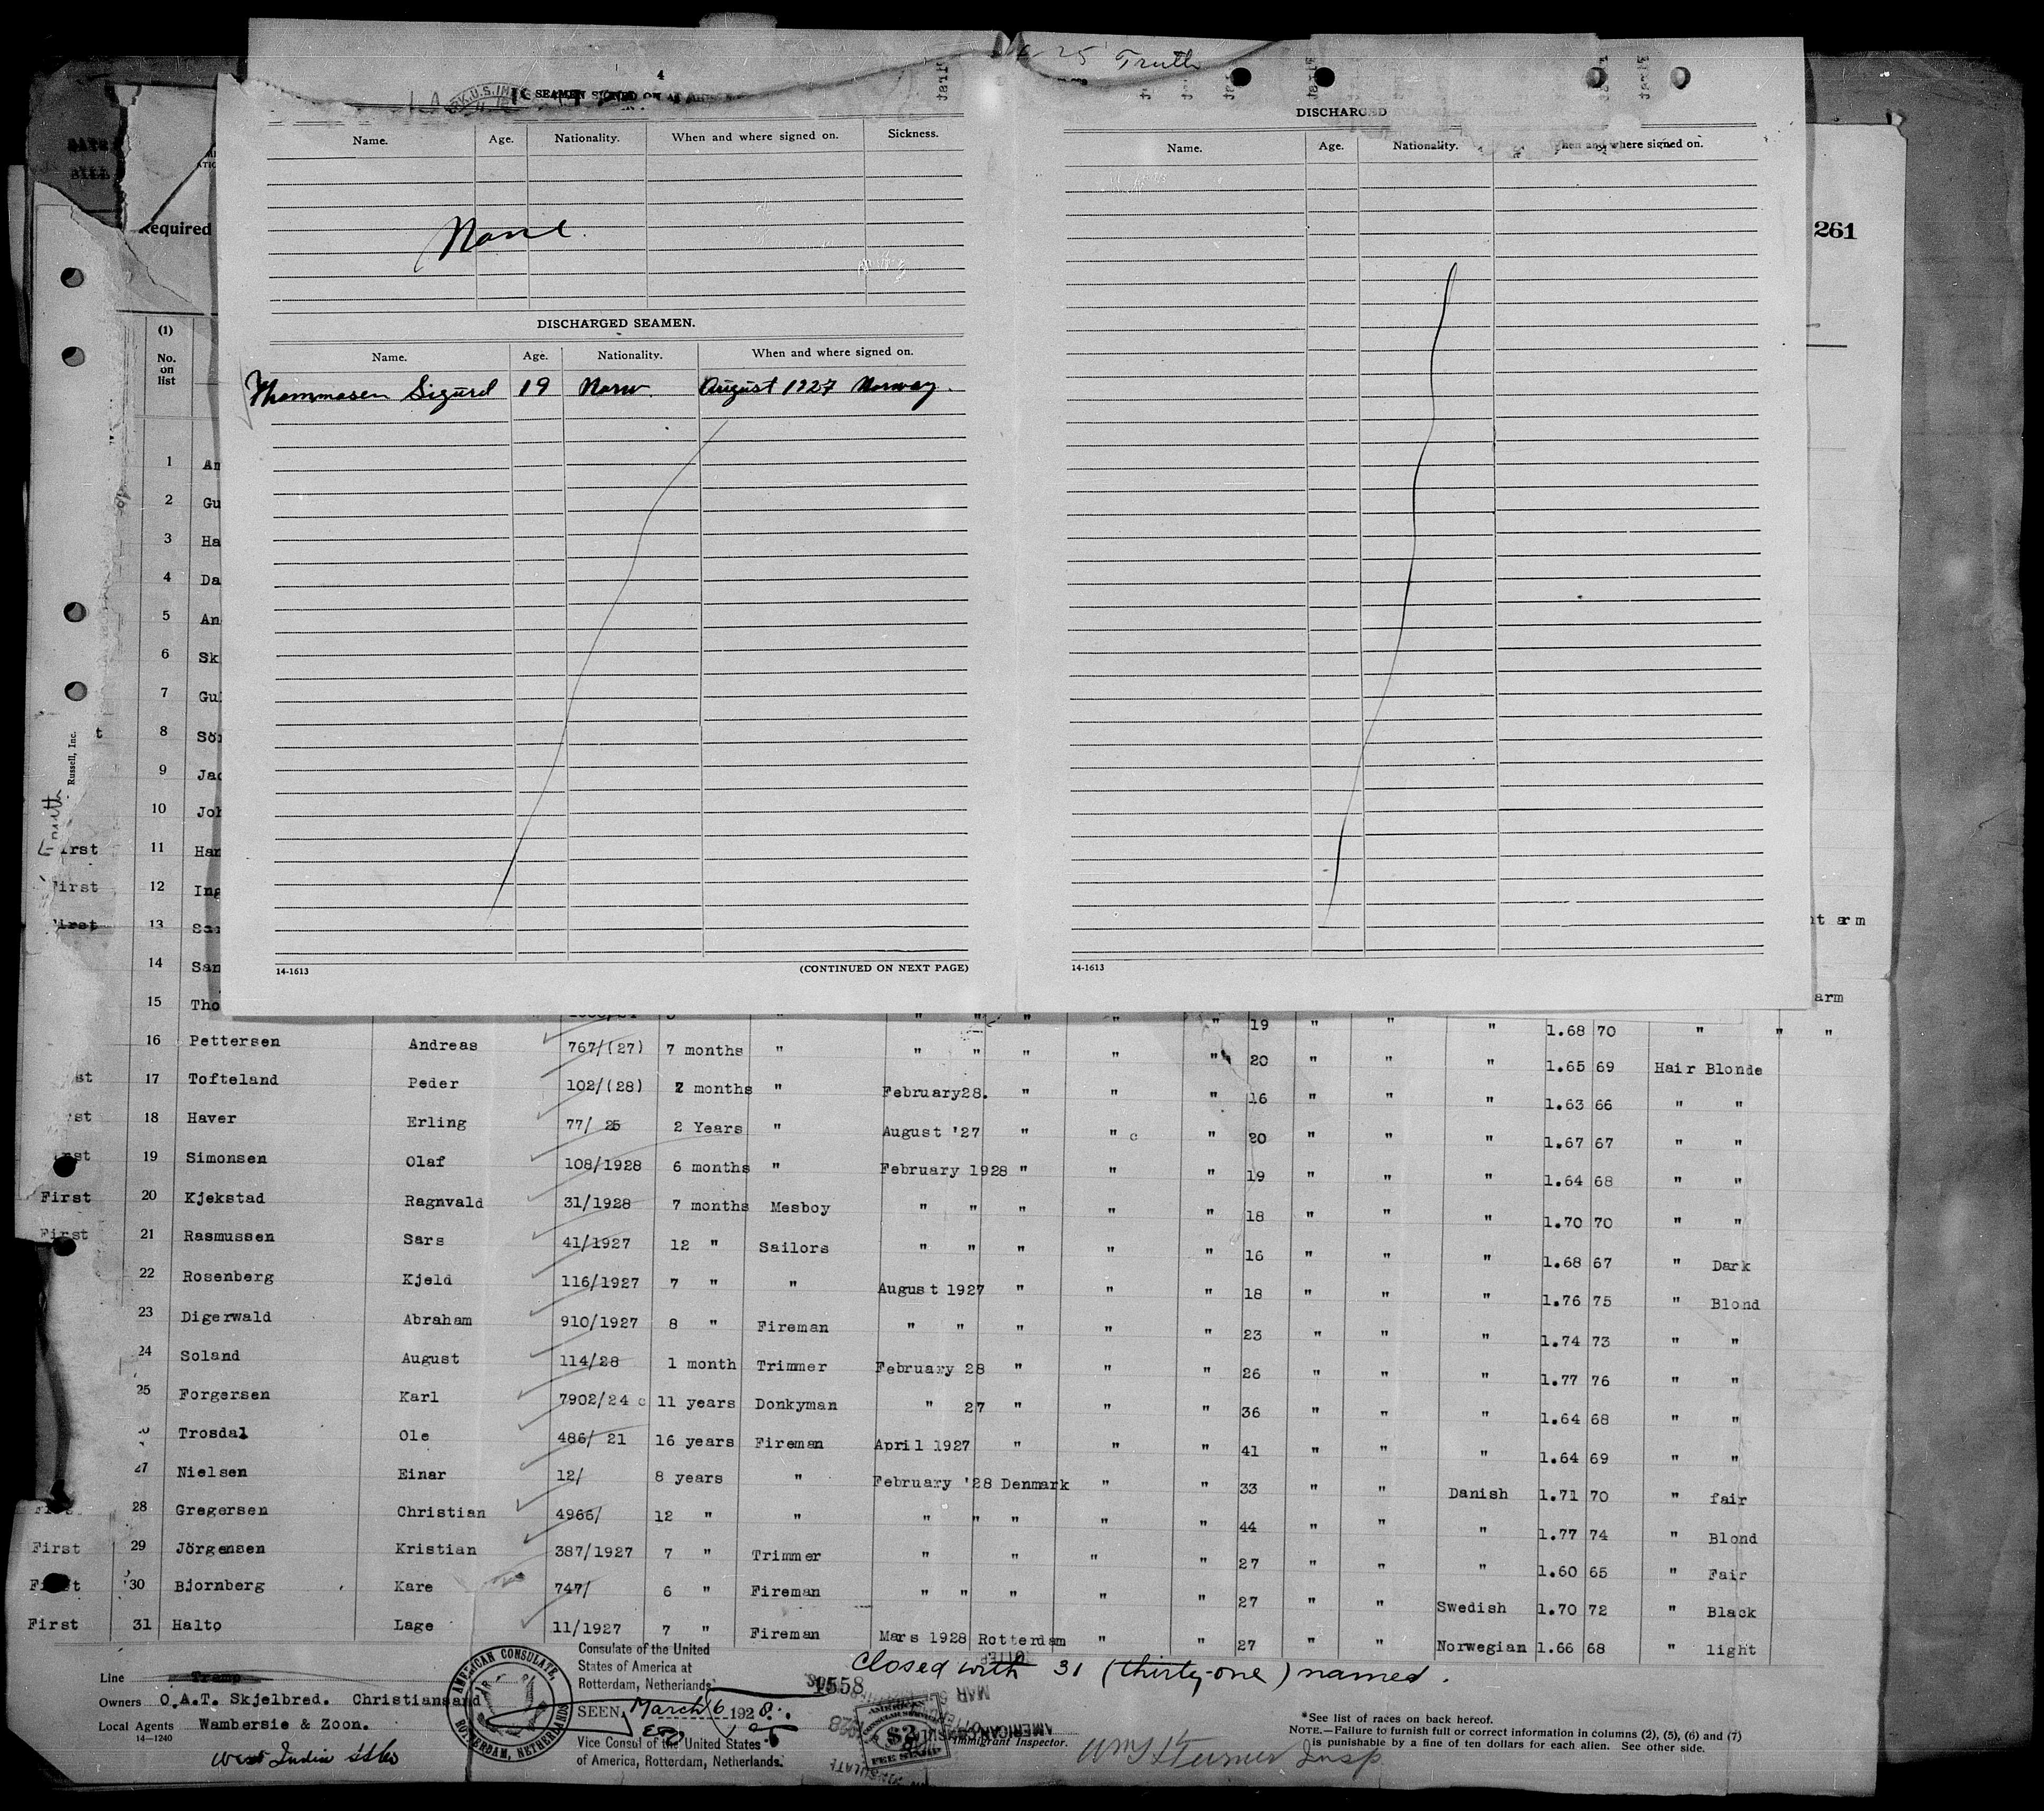 25 Truth
4
SEAMEN SIGNED ON
Name. Age. Nationality. When and where signed on. Sickness.
None.
DISCHARGED SEAMEN.
Name. Age. Nationality. When and where signed on.
Thommasen Sigurd 19 Norw. August 1927 Norway.
14-1613 (CONTINUED ON NEXT PAGE)
DISCHARGED
Name. Age. Nationality. When and where signed on.
14-1613
261
Required
(1)
No. on list
1 An
2 Gu
3 Ha
4 Da
5 An
6 Sk
7 Gu
8 Sö
9 Jac
10 Joh
rst 11 Har
First 12 Ing
First 13 t arm
14 San
15 Tho " " " " " 19 " " " 1.68 70 " " " arm
16 Pettersen Andreas 767/(27) 7 months " " " " " " 20 " " " 1.65 69 Hair Blonde
st 17 Tofteland Peder 102/(28) 2 months " February28. " " " 16 " " " 1.63 66 " "
rst 18 Haver Erling 77/ 25 2 Years " August '27 " " " 20 " " " 1.67 67 " "
st 19 Simonsen Olaf 108/1928 6 months " February 1928 " " " 19 " " " 1.64 68 " "
First 20 Kjekstad Ragnvald 31/1928 7 months Mesboy " " " " " 18 " " " 1.70 70 " "
First 21 Rasmussen Sars 41/1927 12 " Sailors " " " " " 16 " " " 1.68 67 " Dark
22 Rosenberg Kjeld 116/1927 7 " " August 1927 " " " 18 " " " 1.76 75 " Blond
23 Digerwald Abraham 910/1927 8 " Fireman " " " " " 23 " " " 1.74 73 " "
24 Soland August 114/28 1 month Trimmer February 28 " " " 26 " " " 1.77 76 " "
25 Forgersen Karl 7902/24 11 years Donkyman " 27 " " " 36 " " " 1.64 68 " "
Trosdal Ole 486/ 21 16 years Fireman April 1927 " " " 41 " " " 1.64 69 " "
27 Nielsen Einar 12/ 8 years " February '28 Denmark " " 33 " " Danish 1.71 70 " fair
28 Gregersen Christian 4966/ 12 " " " " " " " 44 " " " 1.77 74 " Blond
First 29 Jörgensen Kristian 387/1927 7 " Trimmer " " " " 27 " " " 1.60 65 " Fair
First 30 Bjornberg Kare 747/ 6 " Fireman " " " " " 27 " " Swedish 1.70 72 " Black
First 31 Halto Lage 11/1927 7 " Fireman Mars 1928 Rotterdam " " 27 " " Norwegian 1.66 68 " light
Closed with 31 (thirty-one) named.
Line Tramp
Owners O.A.T. Skjelbred. Christiansand
Local Agents Wambersie & Zoon.
14—1240
West India
AMERICAN CONSULATE, ROTTERDAM, NETHERLANDS
Consulate of the United
States of America at
Rotterdam, Netherlands.
SEEN March 6 1928.
Vice Consul of the United States
of America, Rotterdam, Netherlands.
1558
AMERICAN
CONSULAR SERVICE
$2
FEE STAMP
Immigrant Inspector.
Wm S Turner Insp
*See list of races on back hereof.
NOTE.—Failure to furnish full or correct information in columns (2), (5), (6) and (7)
is punishable by a fine of ten dollars for each alien. See other side.
Russell, Inc.